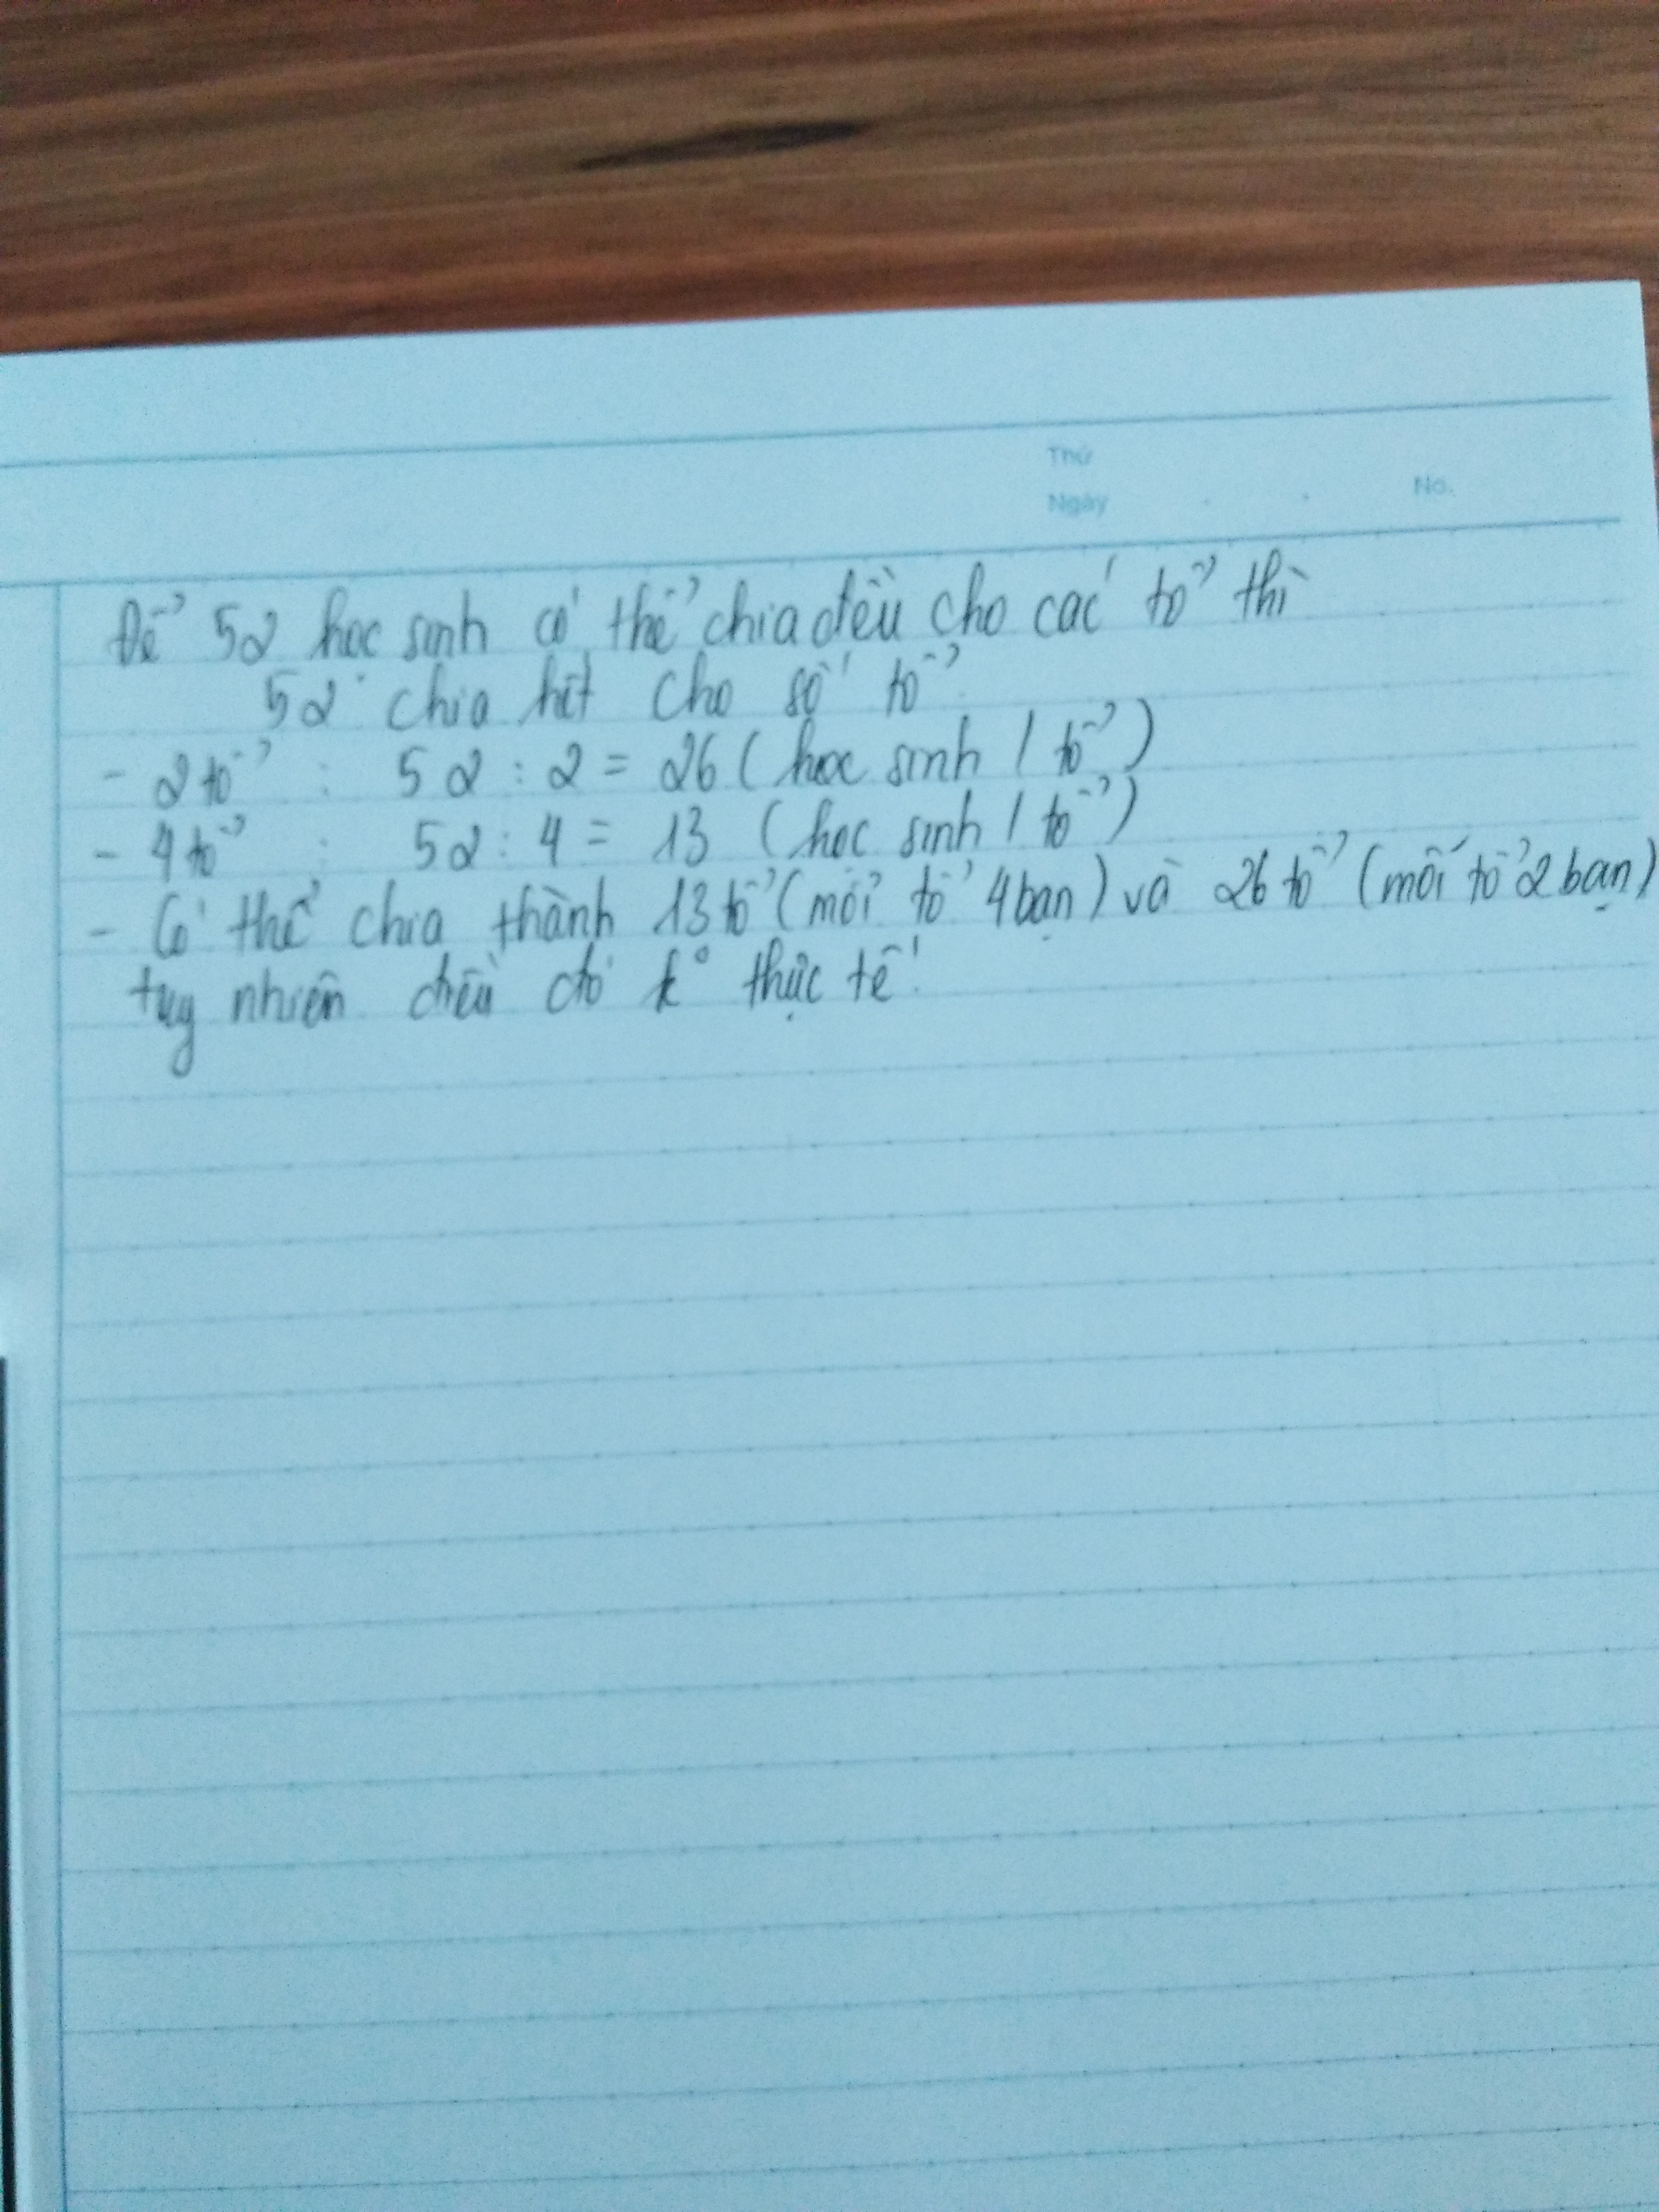 Thứ
Ngày . . No.
Để 52 học sinh có thể chia đều cho các tổ thì
52 chia hết cho số tổ
- 2 tổ : 52 : 2 = 26 ( học sinh / tổ )
- 4 tổ : 52 : 4 = 13 ( học sinh / tổ )
- Có thể chia thành 13 tổ ( mỗi tổ 4 bạn ) và 26 tổ ( mỗi tổ 2 bạn )
tuy nhiên điều đó k° thực tế!